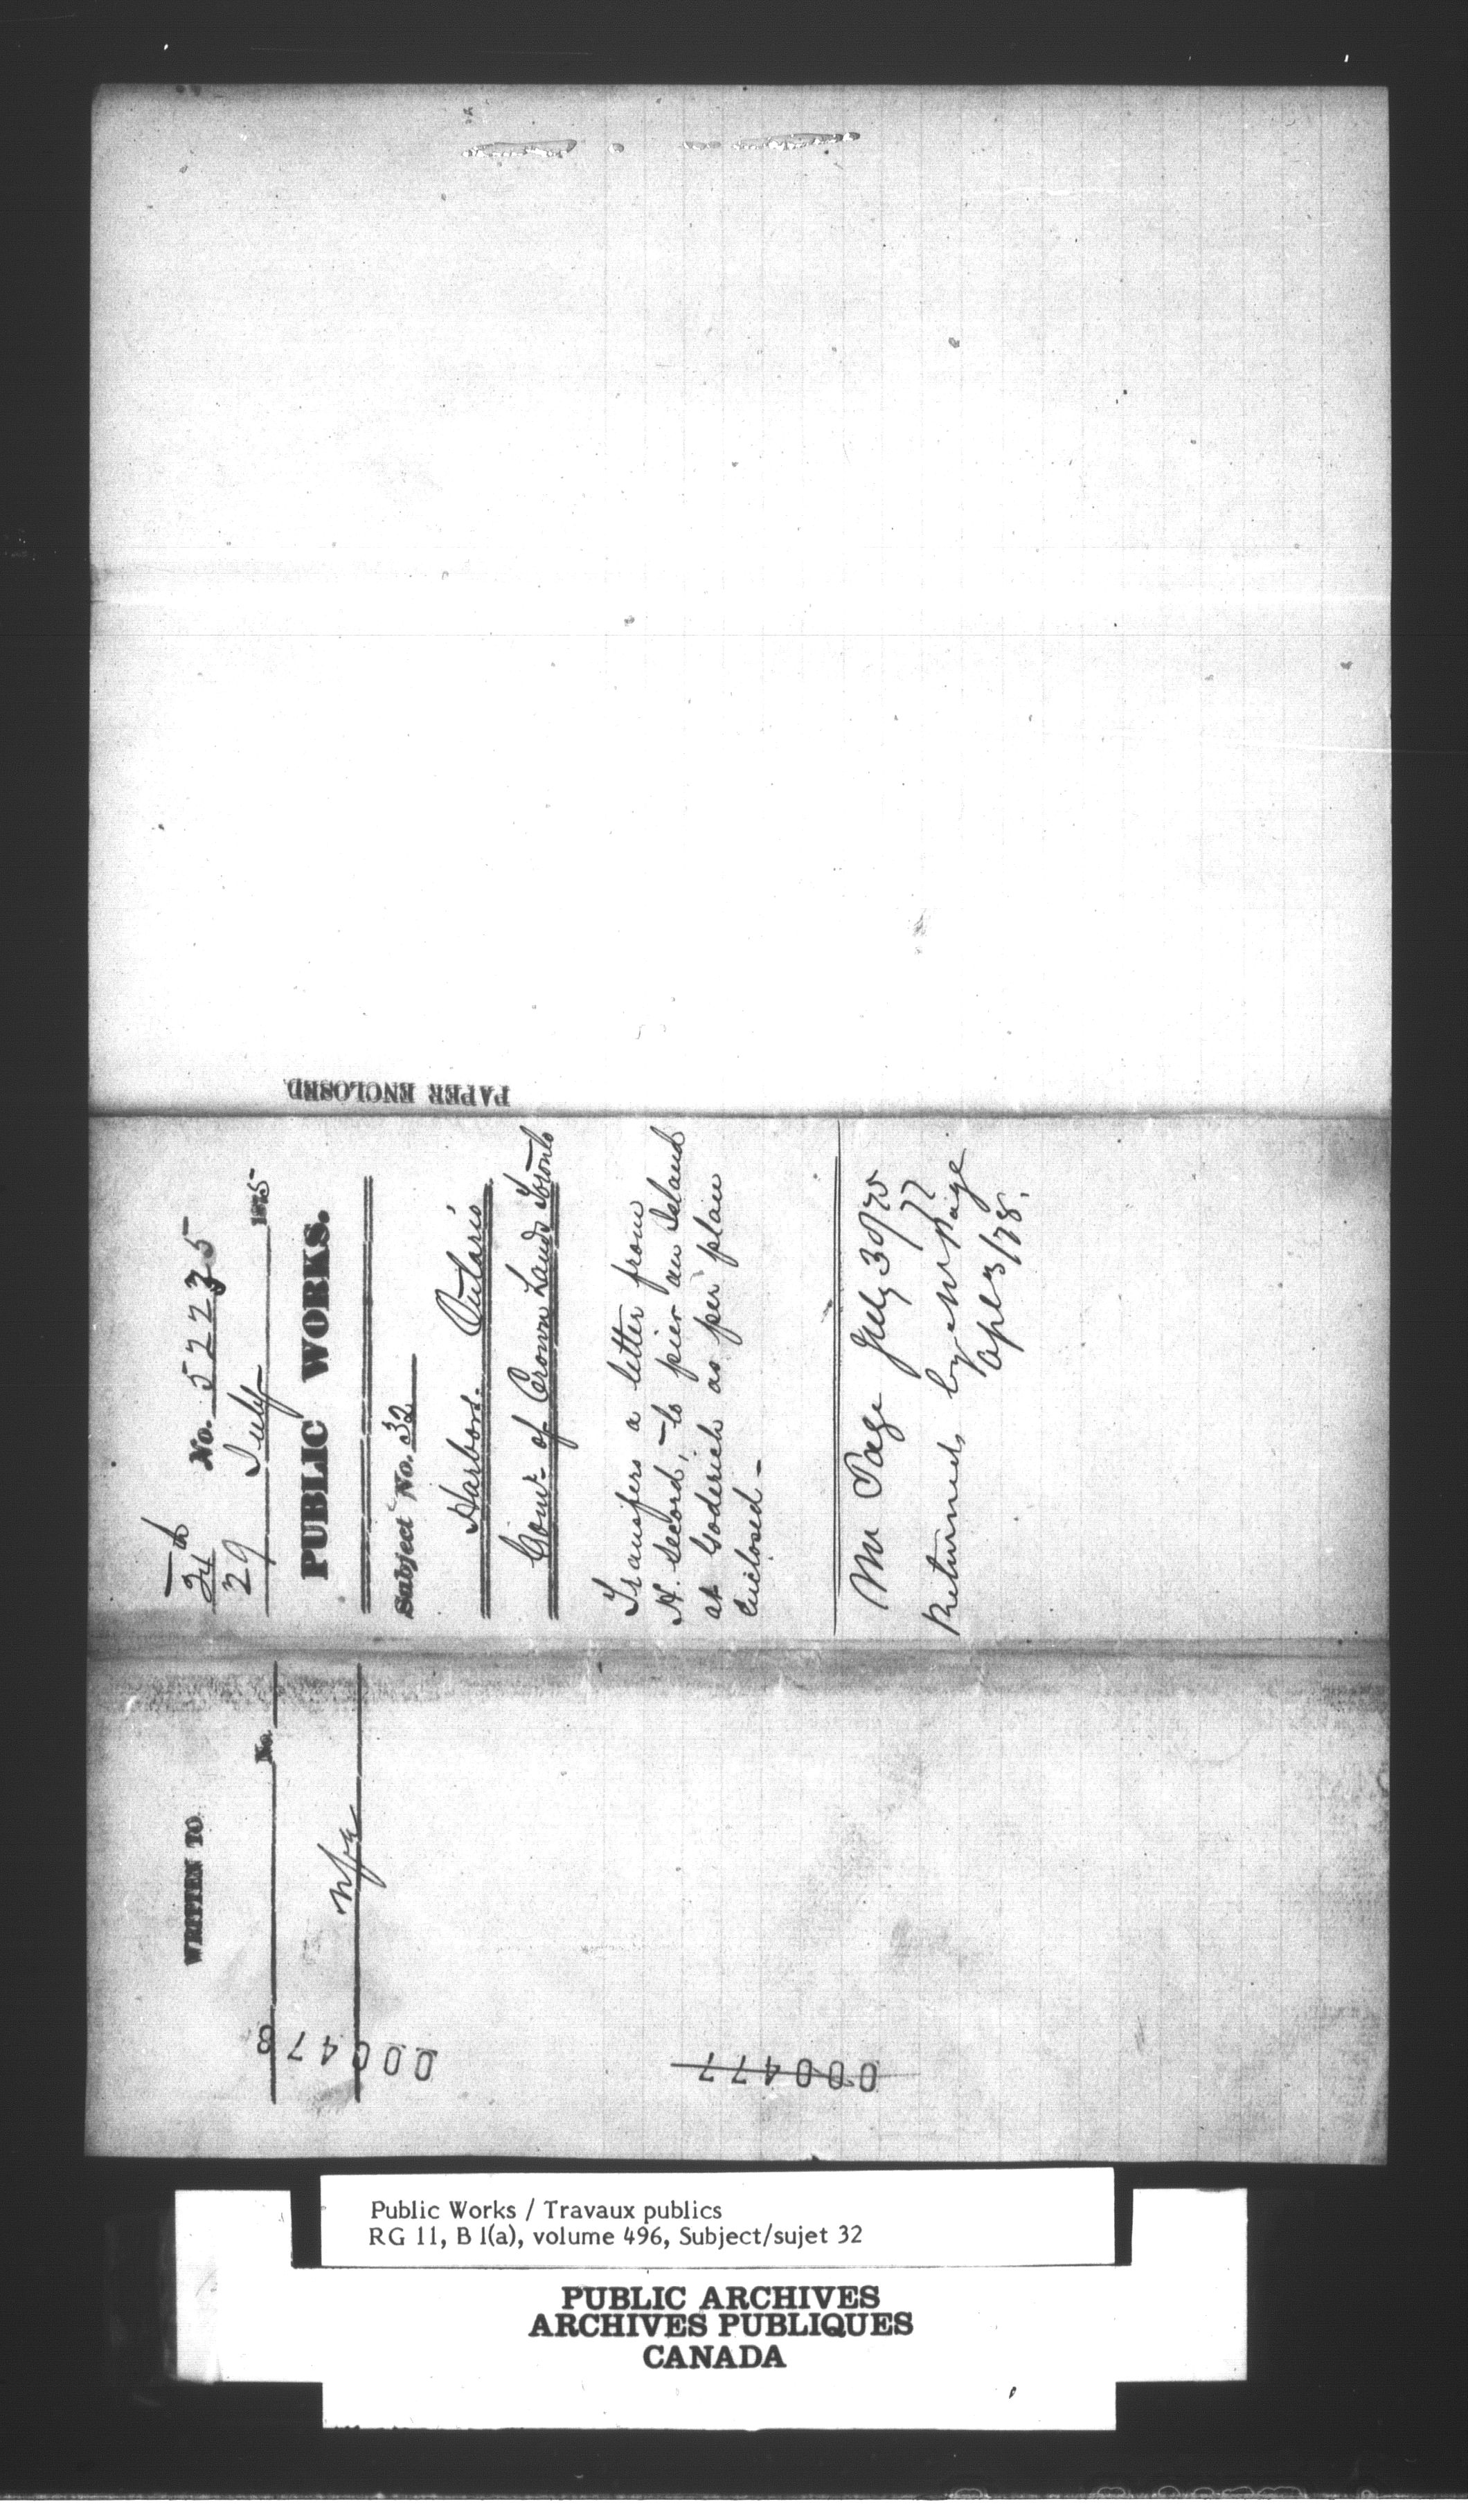 PAPER ENCLOSED
No. 52235
29 July 1875
PUBLIC WORKS.
Subject No. 32
Harbors. Ontario
Comr. of Crown Lands Toronto
Transfers a letter from
H. Secord, to pier an Island
at Goderich as per plan
Enclosed -
Mr Page July 30/75
Returned by Mr Page
Apl 3/78.
WRITTEN TO
No.
nfa
000478
000477
Public Works / Travaux publics
RG 11, B 1(a), volume 496, Subject/sujet 32
PUBLIC ARCHIVES
ARCHIVES PUBLIQUES
CANADA